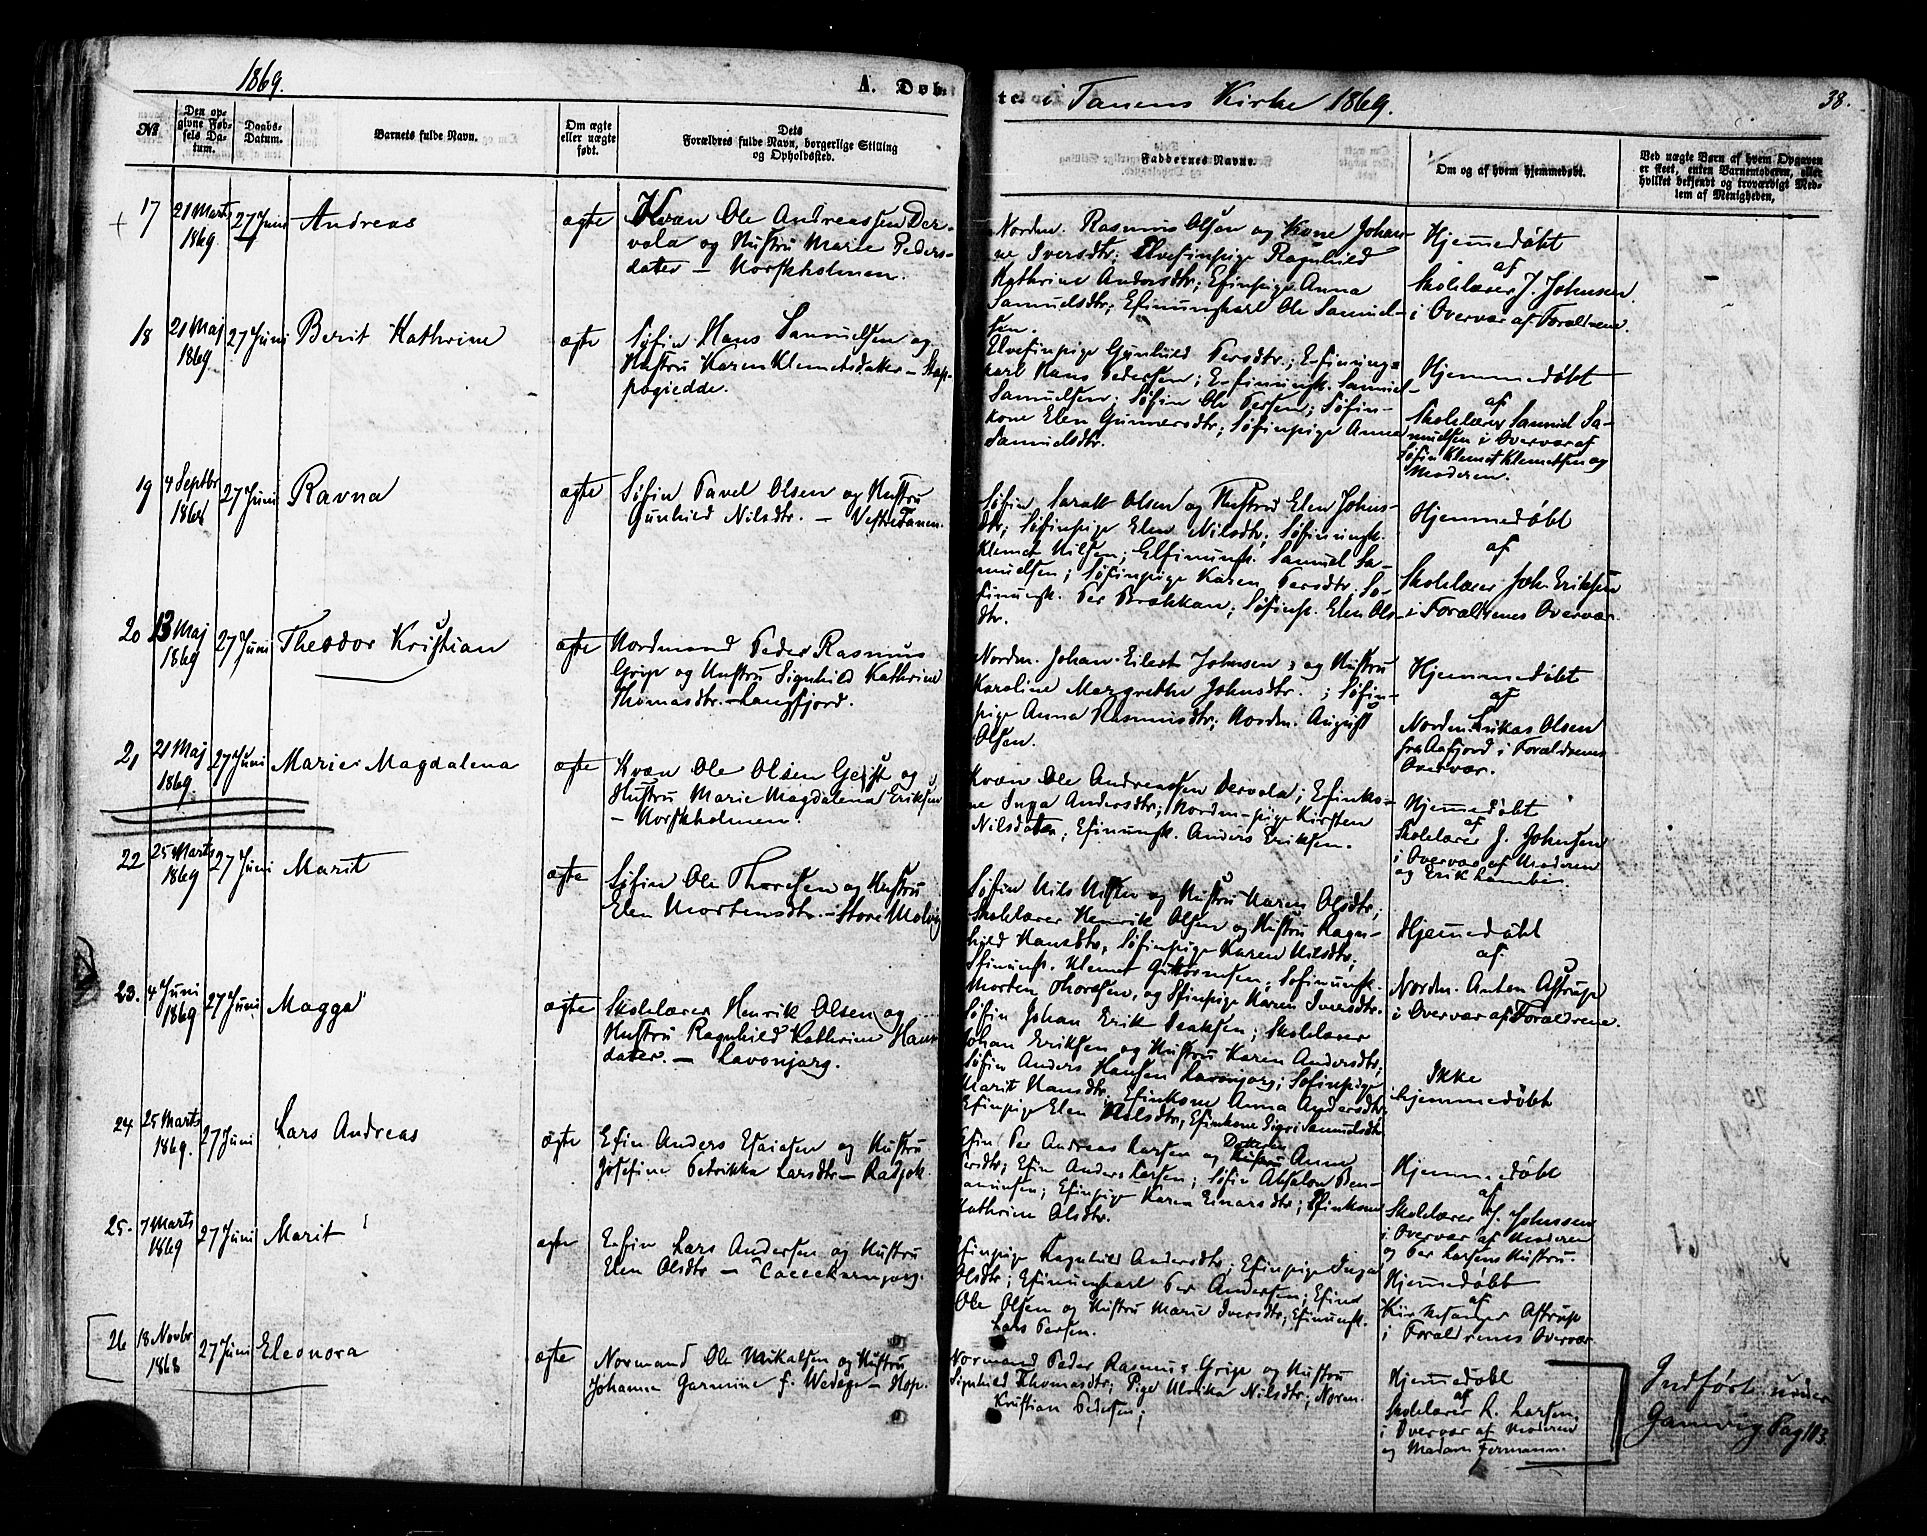 1869.
A. Døb
te i Tanens Kirke 1869.
38.
No
Den op-
givne Fød-
sels Da-
tum.
Daabs-
Datum.
Barnets fulde Navn.
Om ægte
eller uægte
født.
Dets
Forældres fulde Navn, borgerlige Stilling
og Opholdssted.
Faddernes Navne.
Om og af hvem hjemmedøbt.
Ved uægte Børn af hvem Opgaven
er skeet, enten Barnemoderen, eller
hvilket bekjendt og troværdigt Med-
lem af Menigheden.
17
21 Marts
1869
27 Juni
Andreas
ægte
Kvæn Ole Andreassen Der-
vola og Hustru Marie Peders-
datter - Norskholmen.
Nordm. Rasmus Olsen og Kone Johan-
ne Iversdtr; Elvefinpige Ragnhild
Kathrine Andersdtr; Efinpige Anna
Samuelsdtr; Efinungkarl Ole Samuel-
sen.
Hjemmedøbt
af
Skolelærer J. Johnsen
i Overvær af Forældrene.
18
21 Maj
1869
27 Juni
Berit Kathrine
ægte
Søfin Hans Samuelsen og
Hustru Karen Klemetsdatter - Stap-
pogiedde.
Elvefinpige Gunhild Persdtr; E-finung-
karl Hans Pedersen; E-finungk. Samuel
Samuelsen; Søfin Ole Persen; Søfin-
kone Elen Gunnersdtr; Søfinpige Anna
Samuelsdtr.
Hjemmedøbt
af
Skolelærer Samuel Sa-
muelsen i Overvær af
Søfin Klemet Klemetsen og
Moderen.
19
4 Septbr
1868
27 Juni
Ravna
ægte
Søfin Pavel Olsen og Hustru
Gunhild Nilsdtr. - Vestretanen.
Søfin Sarak Olsen og Hustru Elen Johns-
dtr; Søfinpige Elen Nilsdtr; Søfinungk.
Klemet Nilsen; Elfinungk. Samuel Sa-
muelsen; Søfinpige Karen Persdtr; Sø-
finungk. Per Brækkan; Søfinp. Elen Ols-
dtr.
Hjemmedøbt
af
Skolelærer Joh. Eriksen
i Forældrenes Overvær.
20
13 Maj
1869
27 Juni
Theodor Kristian
ægte
Nordmand Peder Rasmus
Grip og Hustru Signhild Kathrine
Thomasdtr. - Langfjord.
Nordm. Johan Eilert Johnsen; og Hustru
Karoline Margrethe Johnsdtr.; Søfin-
pige Anna Rasmusdtr; Nordm. August
Olsen.
Hjemmedøbt
af
Nordm. Lukas Olsen
fra Aafjord i Forældrenes
Overvær.
21
21 Maj
1869
27 Juni
Marie Magdalena
ægte
Kvæn Ole Olsen Geist og
Hustru Marie Magdalena Eriksen
- Norskholmen.
Kvæn Ole Andreassen Dervola; Efinko-
ne Inga Andersdtr; Nordm-pige Kirsten
Nilsdatter; Efinungk. Anders Eriksen.
Hjemmedøbt
af
Skolelærer J. Johnsen
i Overvær af Moderen
og Erik
22
25 Marts
1869
27 Juni
Marit
ægte
Søfin Ole Thordsen og Hustru
Elen Mortensdtr. - Store Molvig
Søfin Nils Nilsen og Hustru Karen Olsdtr;
Skolelærer Henrik Olsen og Hustru Ragn-
hild Hansdtr, Søfinpige Karen Nilsdtr;
Sfinungk. Klemet Guttormsen; Søfinungk.
Morten Thordsen, og Sfinpige Karen Iversdtr.
Hjemmedøbt
af
Nordm. Anten Astrup
i Overvær af Forældrene.
23.
4 Juni
1869
27 Juni
Magga
ægte
Skolelærer Henrik Olsen og
Hustru Ragnhild Kathrine Hans
datter. - Lavonjarg.
Søfin Johan Erik Isaksen; Skolelærer
Johan Eriksen og Hustru Karen Andersdtr;
Søfin Anders Hansen Lavonjarg; Søfinpige
Marit Hansdtr; Efinkone Anna Andersdtr;
Efinpige Elen Nilsdtr, Efinkone Sigri Samuelsdtr
Ikke
hjemmedøbt
24
25 Marts
1869.
27 Juni
Lars Andreas
ægte
Efin Anders Esaiasen og Hustru
Josefine Petrikka Larsdtr - Radjok.
Efin Per Andreas Larsen og Datteren Anne
Persdtr; Efin Anders Larsen; Søfin Absalon Ben-
jaminsen; Efinpige Karen Einarsdtr; Efinkone
Kathrine Olsdtr.
Hjemmedøbt
af
Skolelærer J. Johnsen
i Overvær af Moderen
og Per Larsens Hustru.
25.
7 Marts
1869
27 Juni
Marit
ægte
E-fin Lars Andersen og Hustru
Elen Olsdtr -
Efinpige Ragnhild Andersdtr; Efinpige Inga
Olsdtr; Efinungkarl Per Andersen; Efind
Ole Olsen og Hustru Marie Iversdtr; Efinungk.
Lars Persen.
Hjemmedøbt
af
Kirkesanger Astrup
i Forældrenes Overvær
26
18 Novbr
1868
27 Juni
Eleonora
ægte
Normand Ole Mikalsen og Hustru
Johanna f. Wedege - Hop.
Normand Peder Rasmus Grip og Hustru
Signhild Thomasdtr; Pige Ulrika Nilsdtr; Norm.
Kristian Pedersen;
Hjemmedøbt
af
Skolelærer R. Larsen
i Overvær af Moderen
og Madam Formann.
Indført under
Gamvig Pag 113.